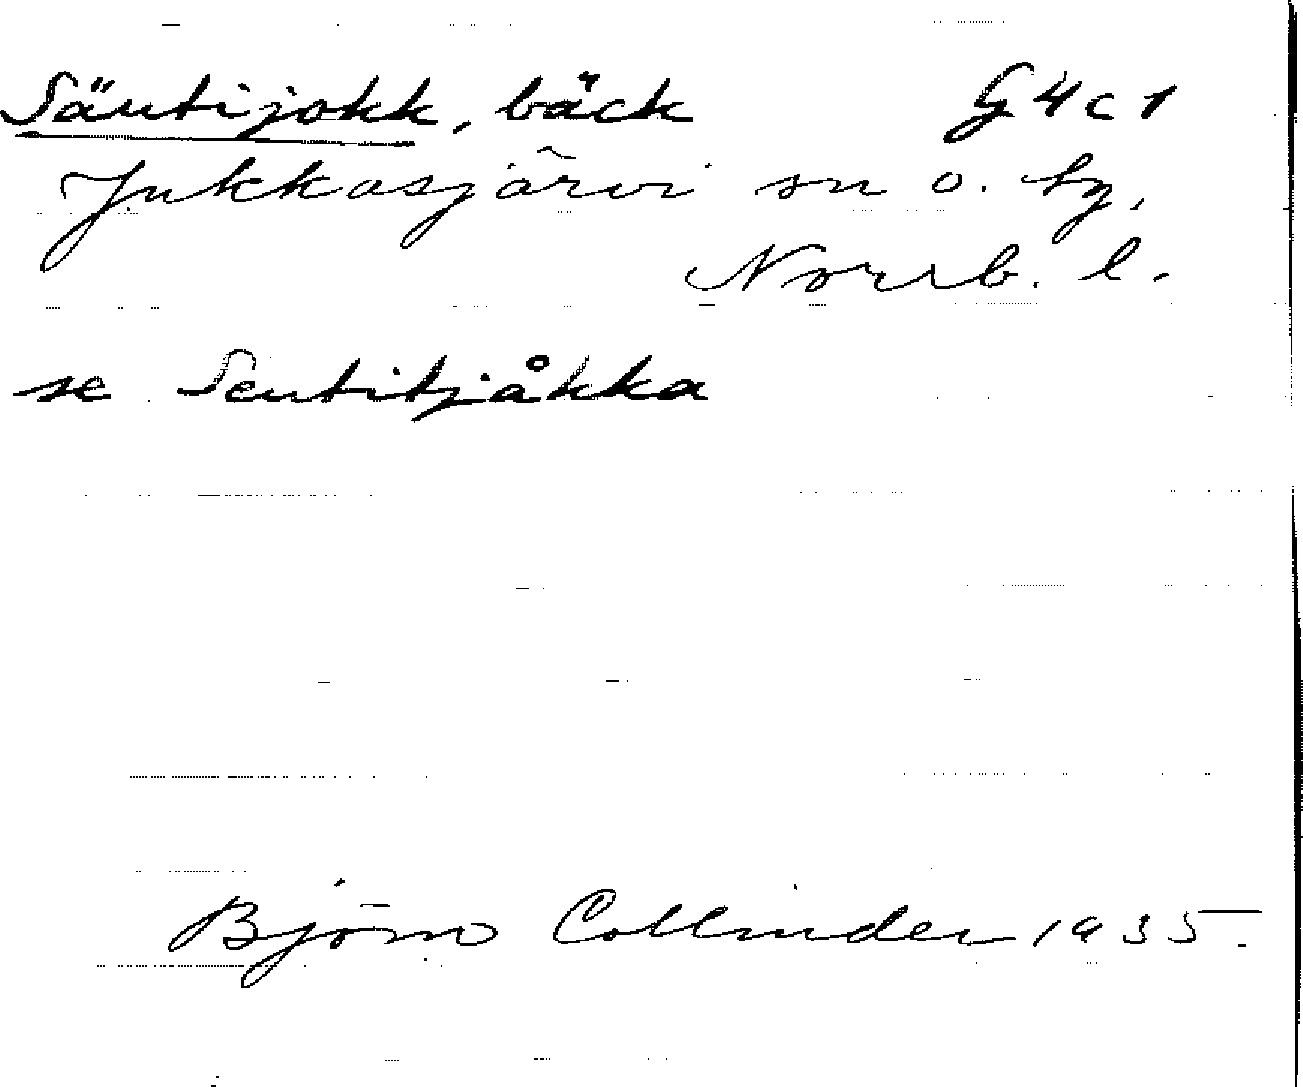 Säutijokk, bäck G 4 c 1
Jukkasjärvi sn o. hg,
Norrb. l.
se Seutitjåkka
Björn Collinder 1935.